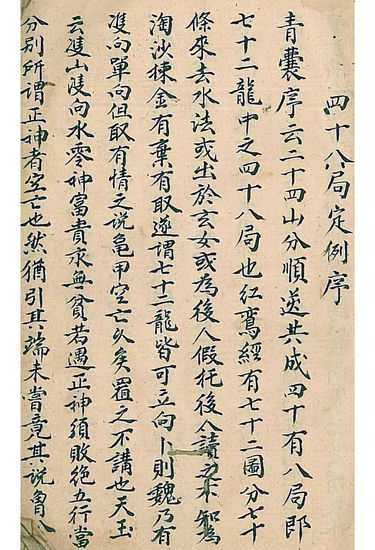 四十八局定例序
青囊序云二十四山分順逆共成四十有八局即
七十二龍中之四十八局也紅鸞經有七十二圖分七十
條來去水法或出於玄女或為後人假托後人讀之不知為
淘沙揀金有棄有取遂謂七十二龍皆可立向卜則魏乃有
雙向單向但取有情之說龜甲空亡久矣置之不講也天玉
云雙山雙向水零神富貴永無貧若遇正神須敗絕五行當
分別所謂正神者空亡也然猶引其端未嘗竟其說魯八